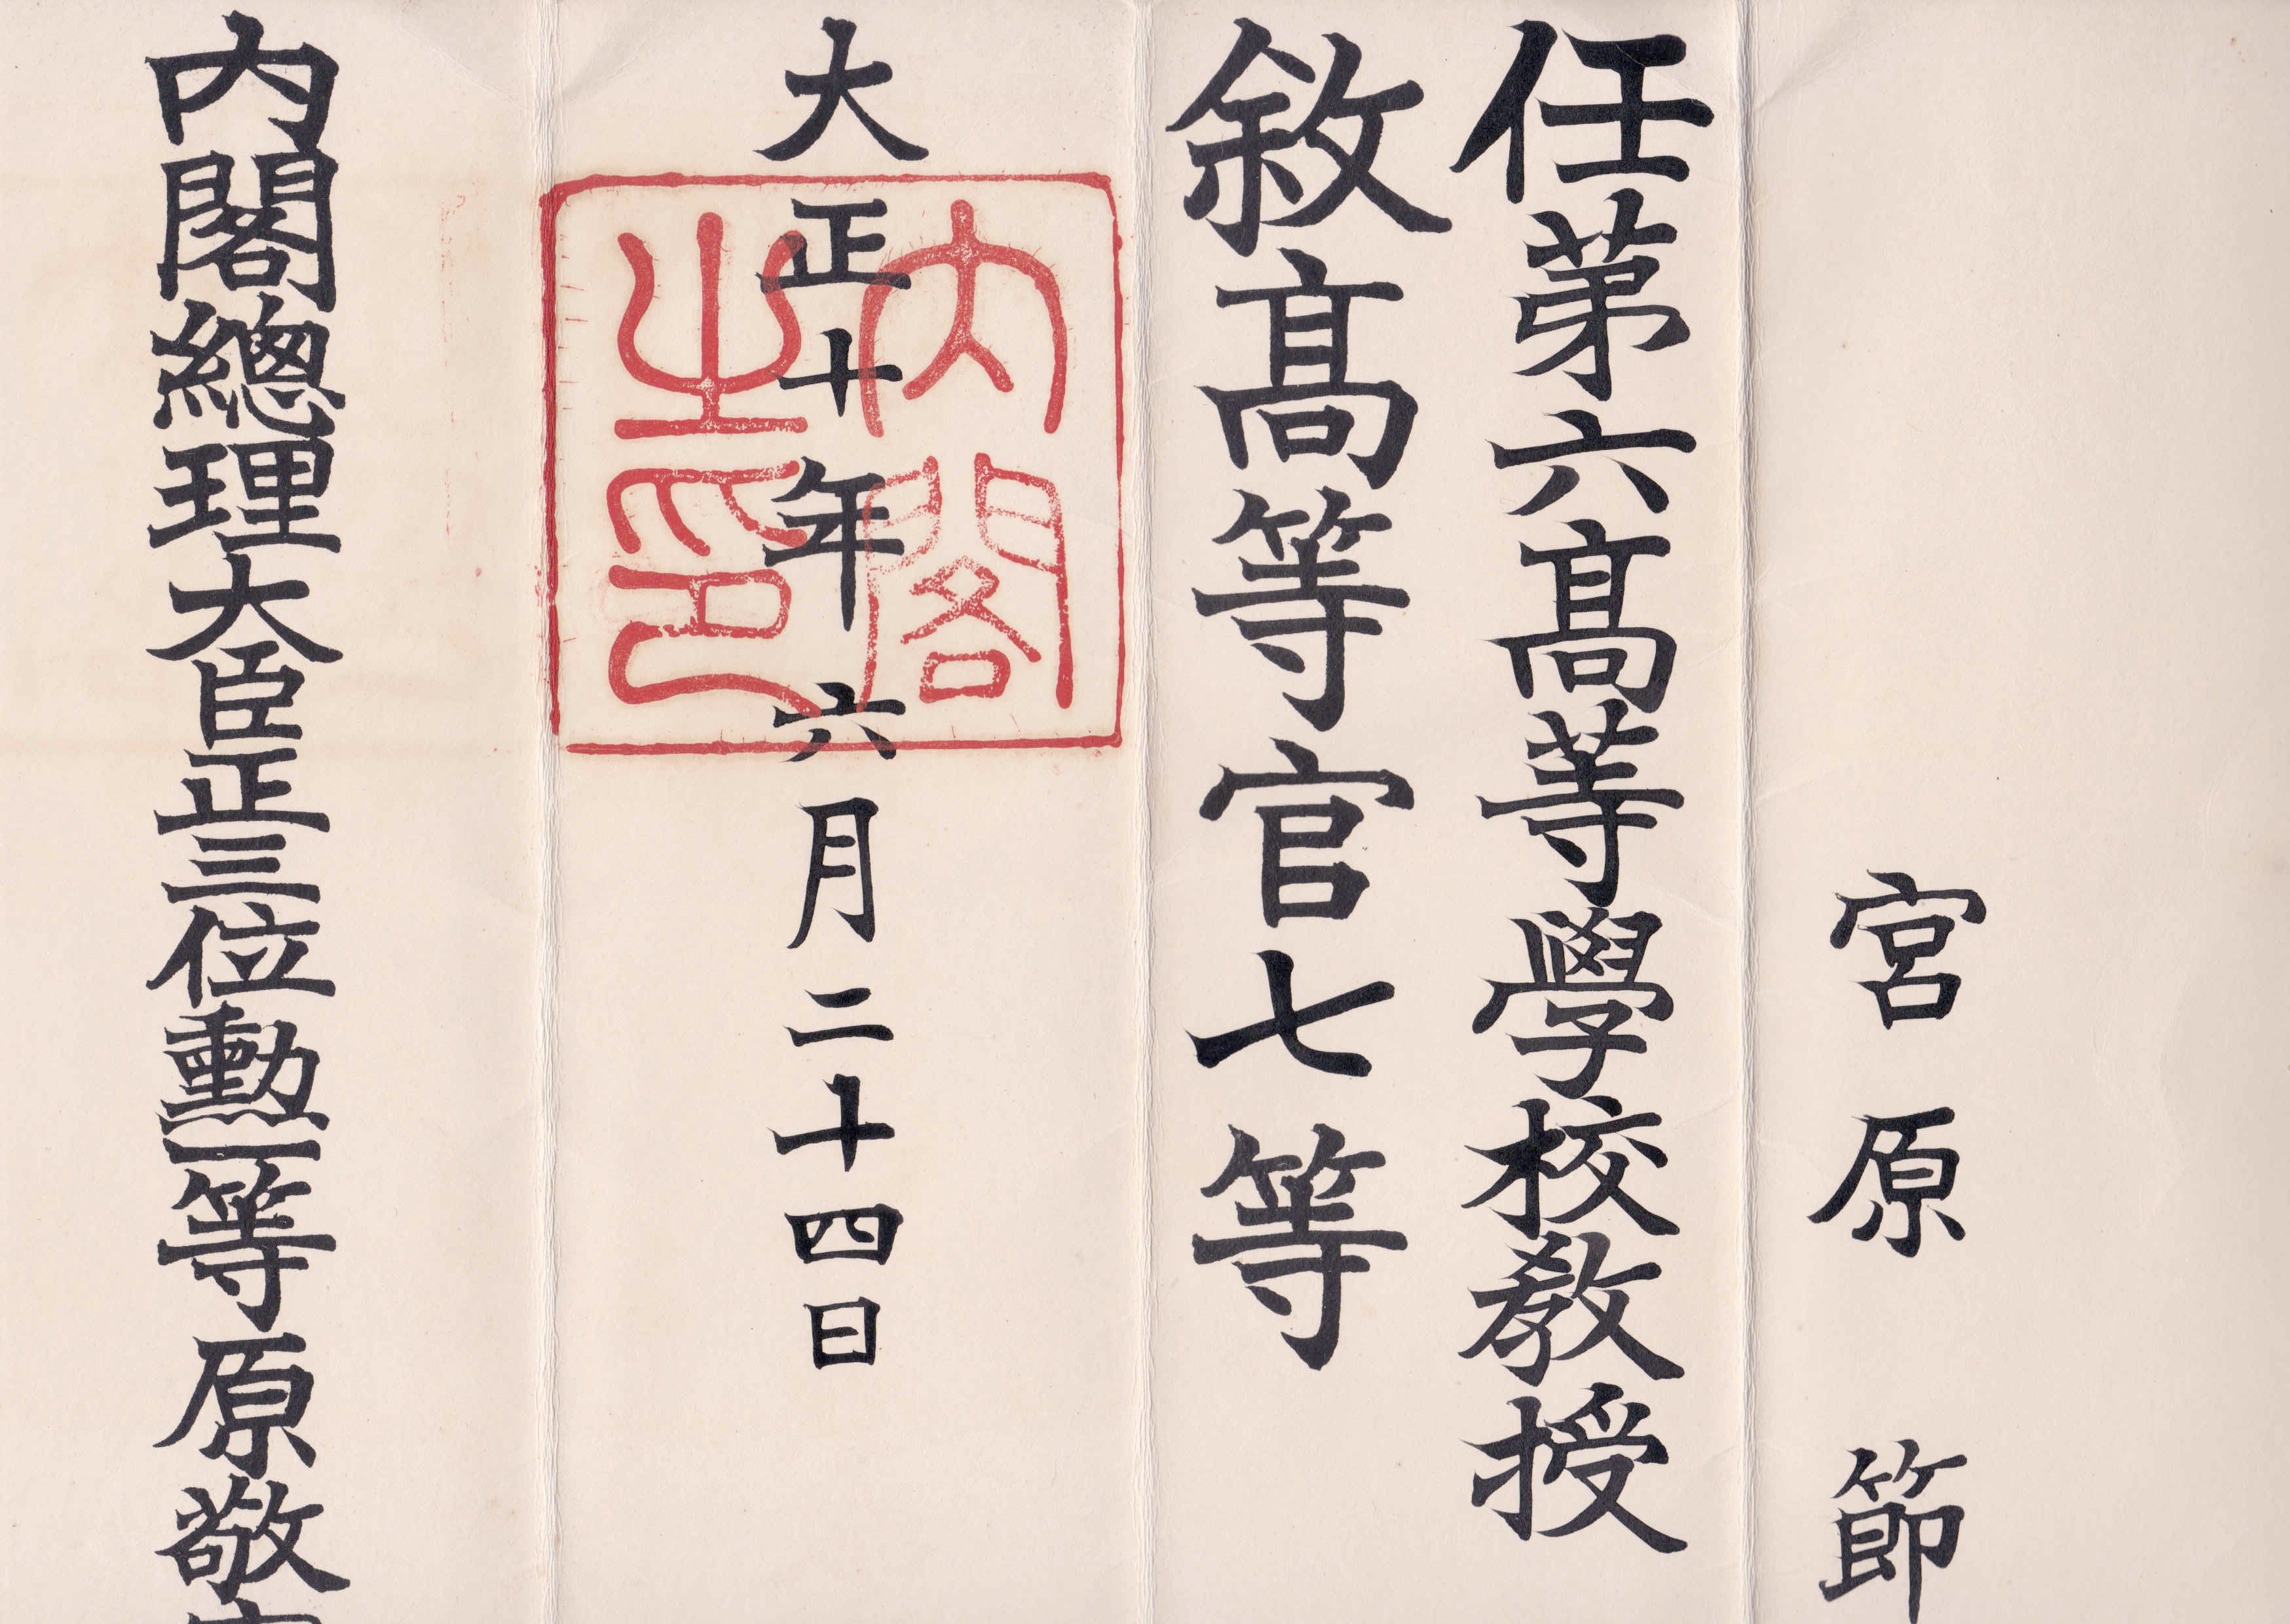 宮原節
任第六髙等學校教授
敘髙等官七等
大正十年六月二十四日
內閣之印
內閣總理大臣正三位勲一等原敬